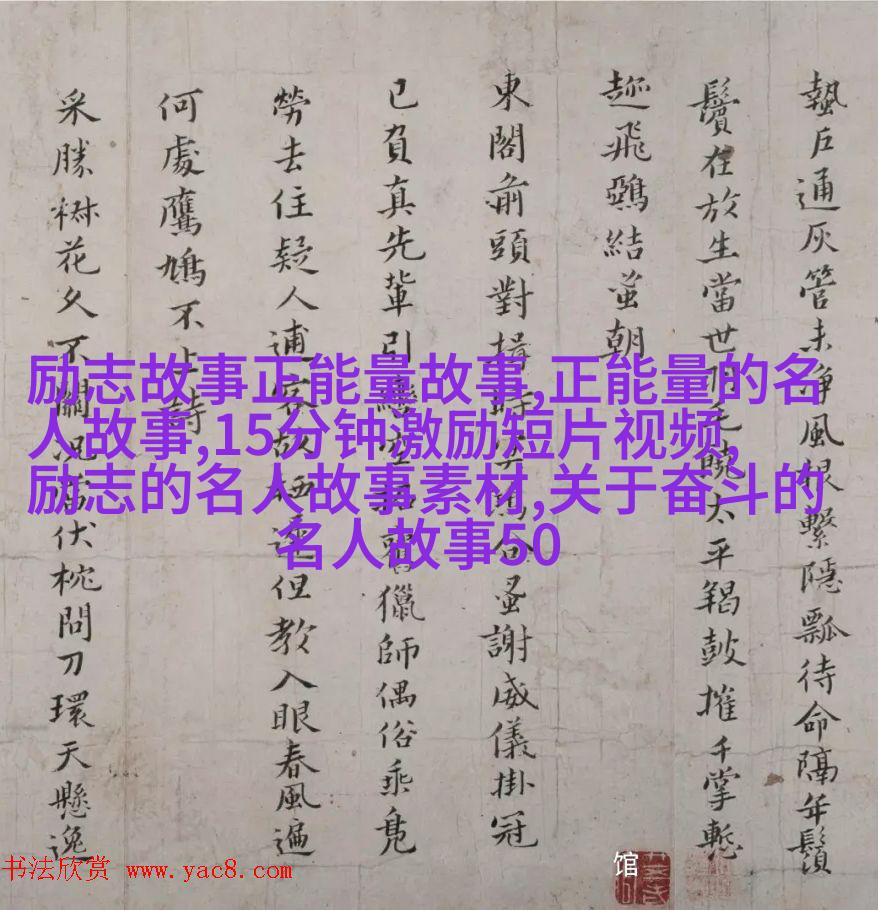 蟄戶通灰管未淨風根繫隱瓢待命隔年鬚
鬢在放生當世明毛曉太平羯鼓摧千掌慙
趂飛鵶結蚩朝
東閣前頭對揖時
蚤謝威儀掛冠
已負真先輩引
獵師偶俗乘鳧
勞去住疑人逋客故
但教入眼春風遍
何處鷹鳩不上詩
采勝樹花久不關况
伏枕問刀環天懸逸
励志故事正能量故事,正能量的名
人故事,15分钟激励短片视频,
励志的名人故事素材,关于奋斗的
名人故事50
书法欣赏 www.yac8.com
馆